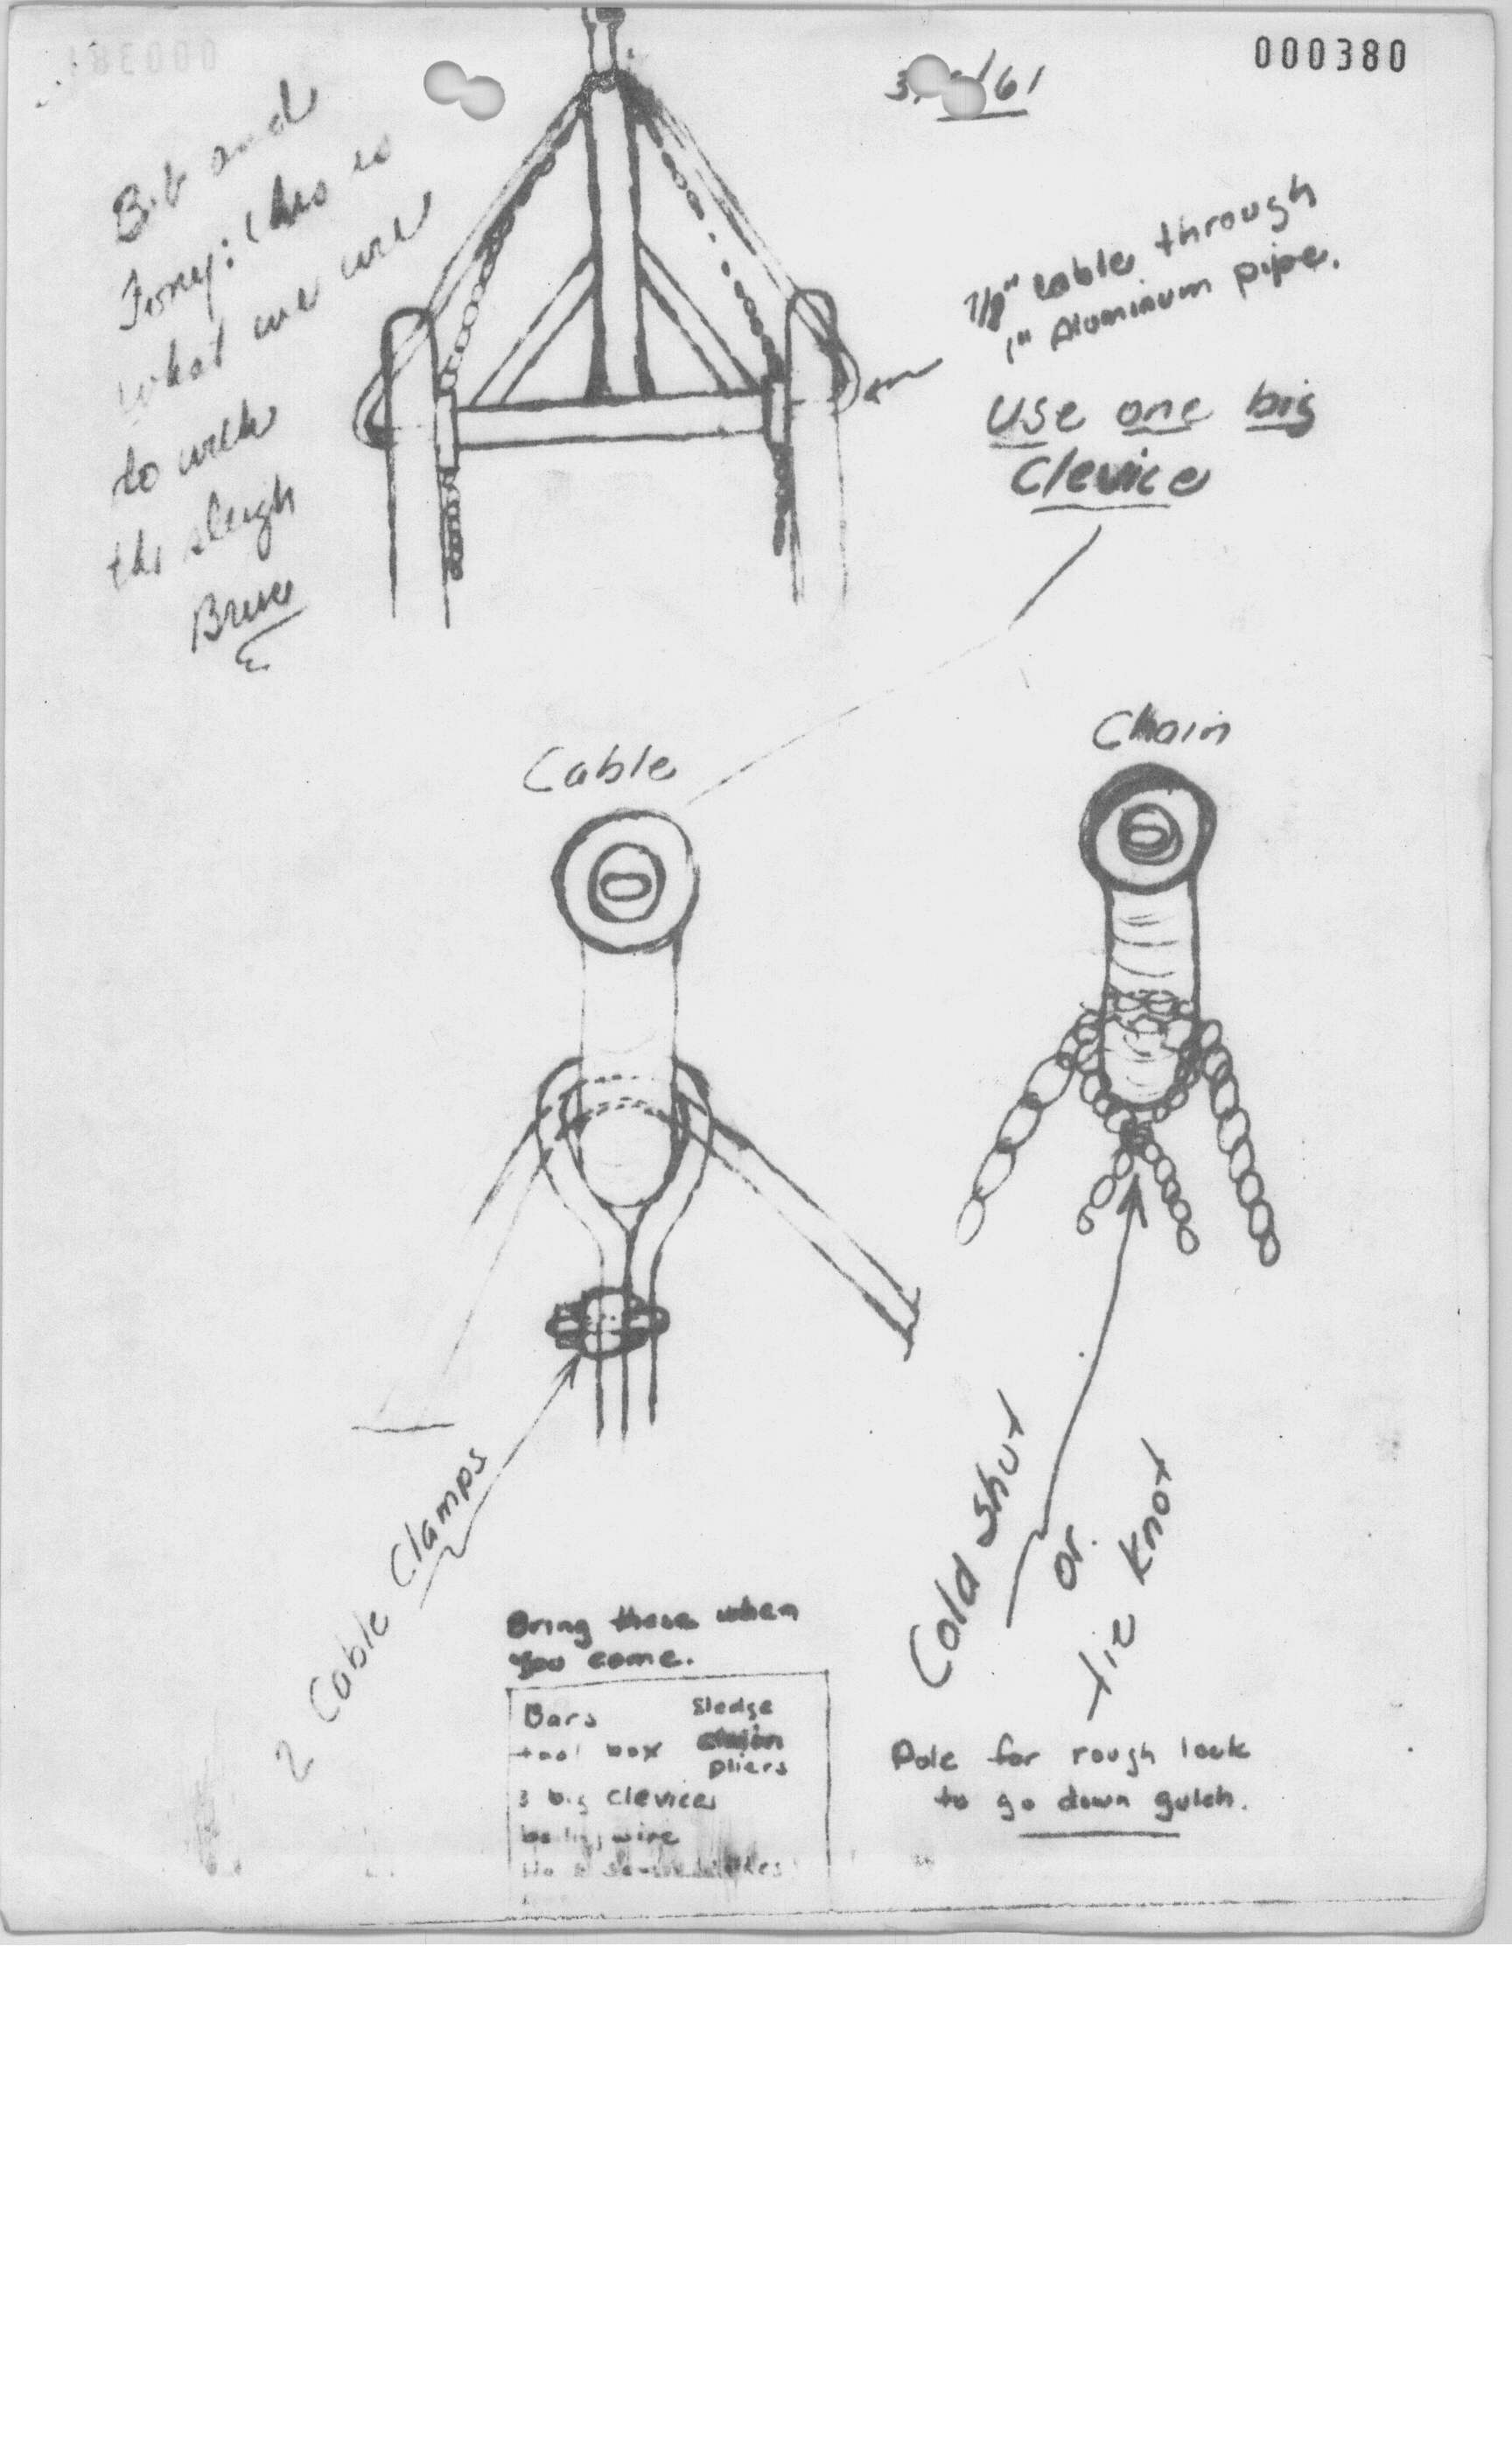 000380
Bob and
Tony: this is
what we will
to with
the sleigh
Bruce
7/8" cable through
1" Aluminum pipe.
Use one big
Clevice
Cable
Chain
2 Cable Clamps
Cold Shut
or
tie knot
Bring these when
you come.
Bars Sledge
tool box
pliers
3 big clevices
wire
Pole for rough lock
to go down gulch.